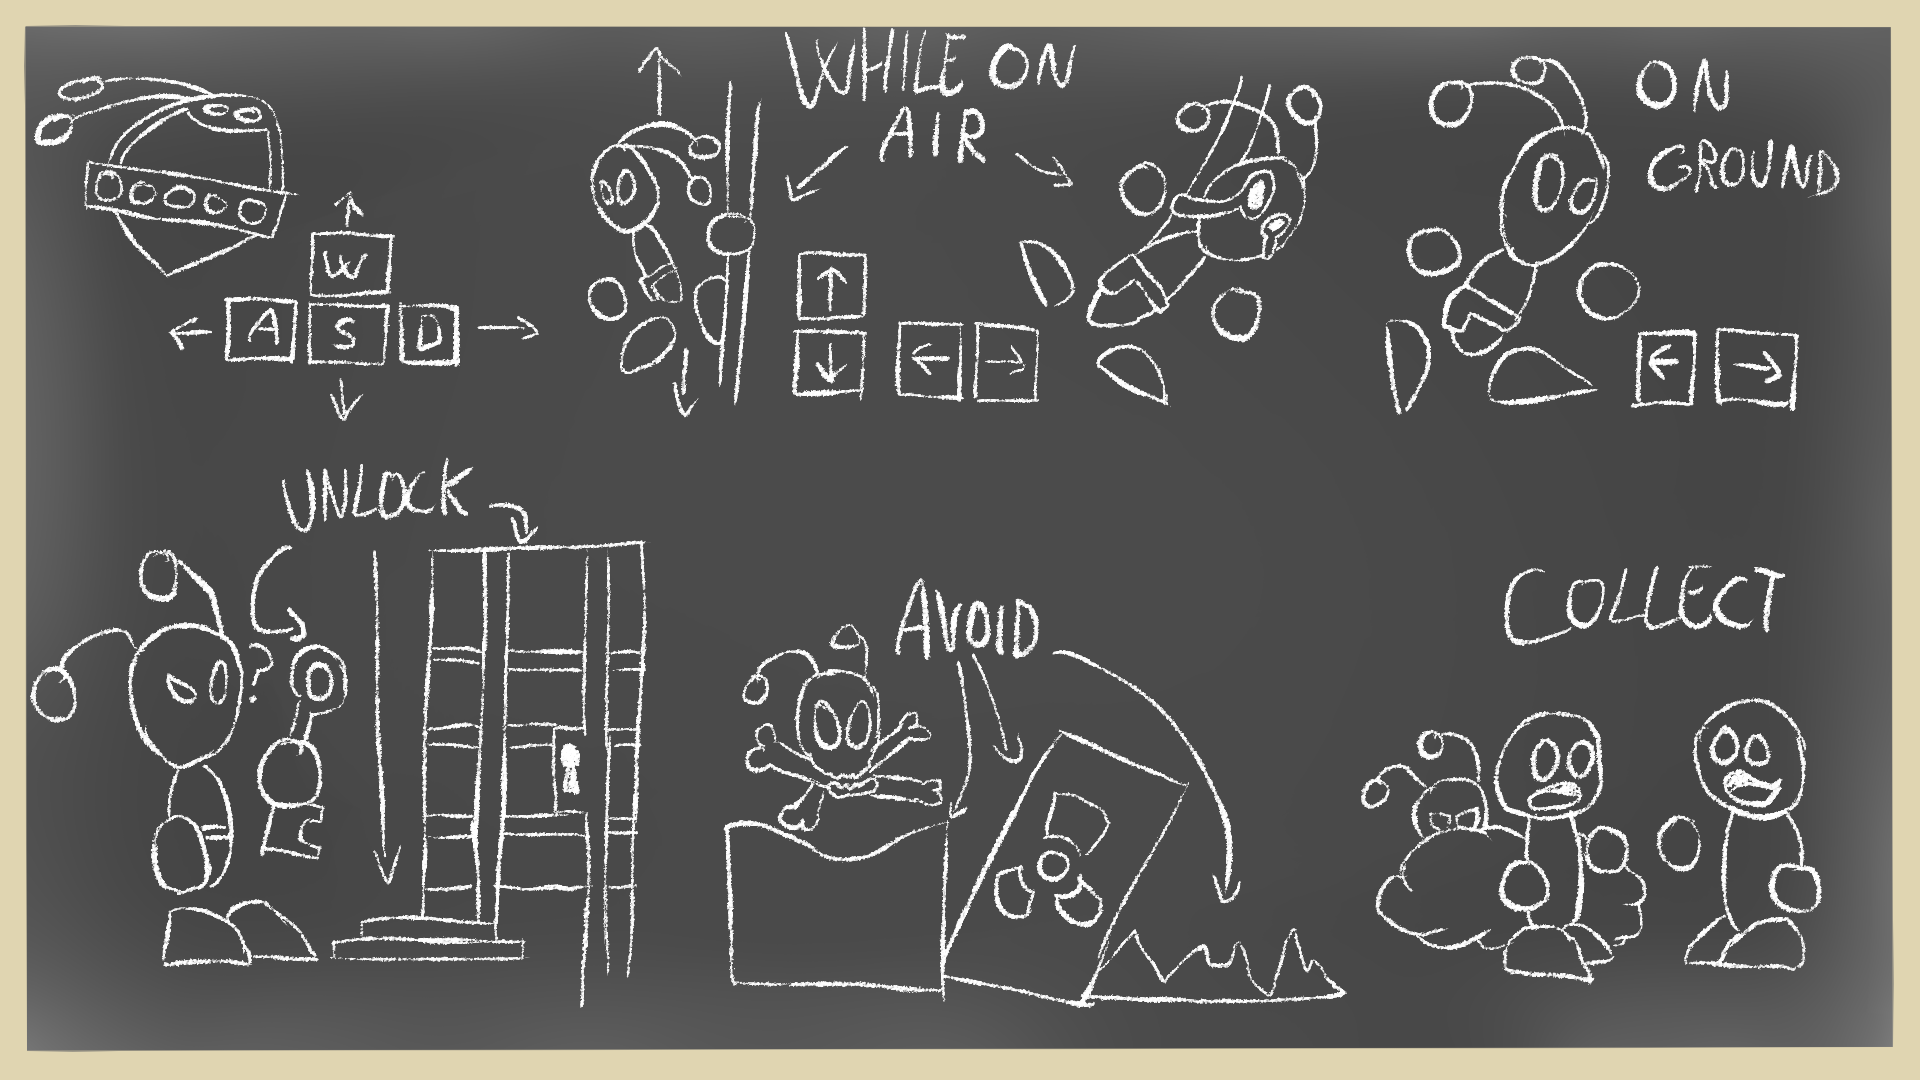 WHILE ON
AIR
ON
GROUND
W
A S D
↑
↓
← →
← →
UNLOCK
?
AVOID
COLLECT